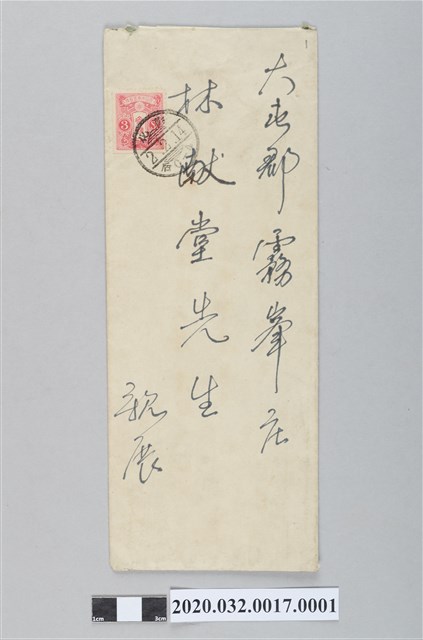 大屯郡霧峯庄
林献堂先生
親展
2.8.14
3
1cm
5cm
2020.032.0017.0001